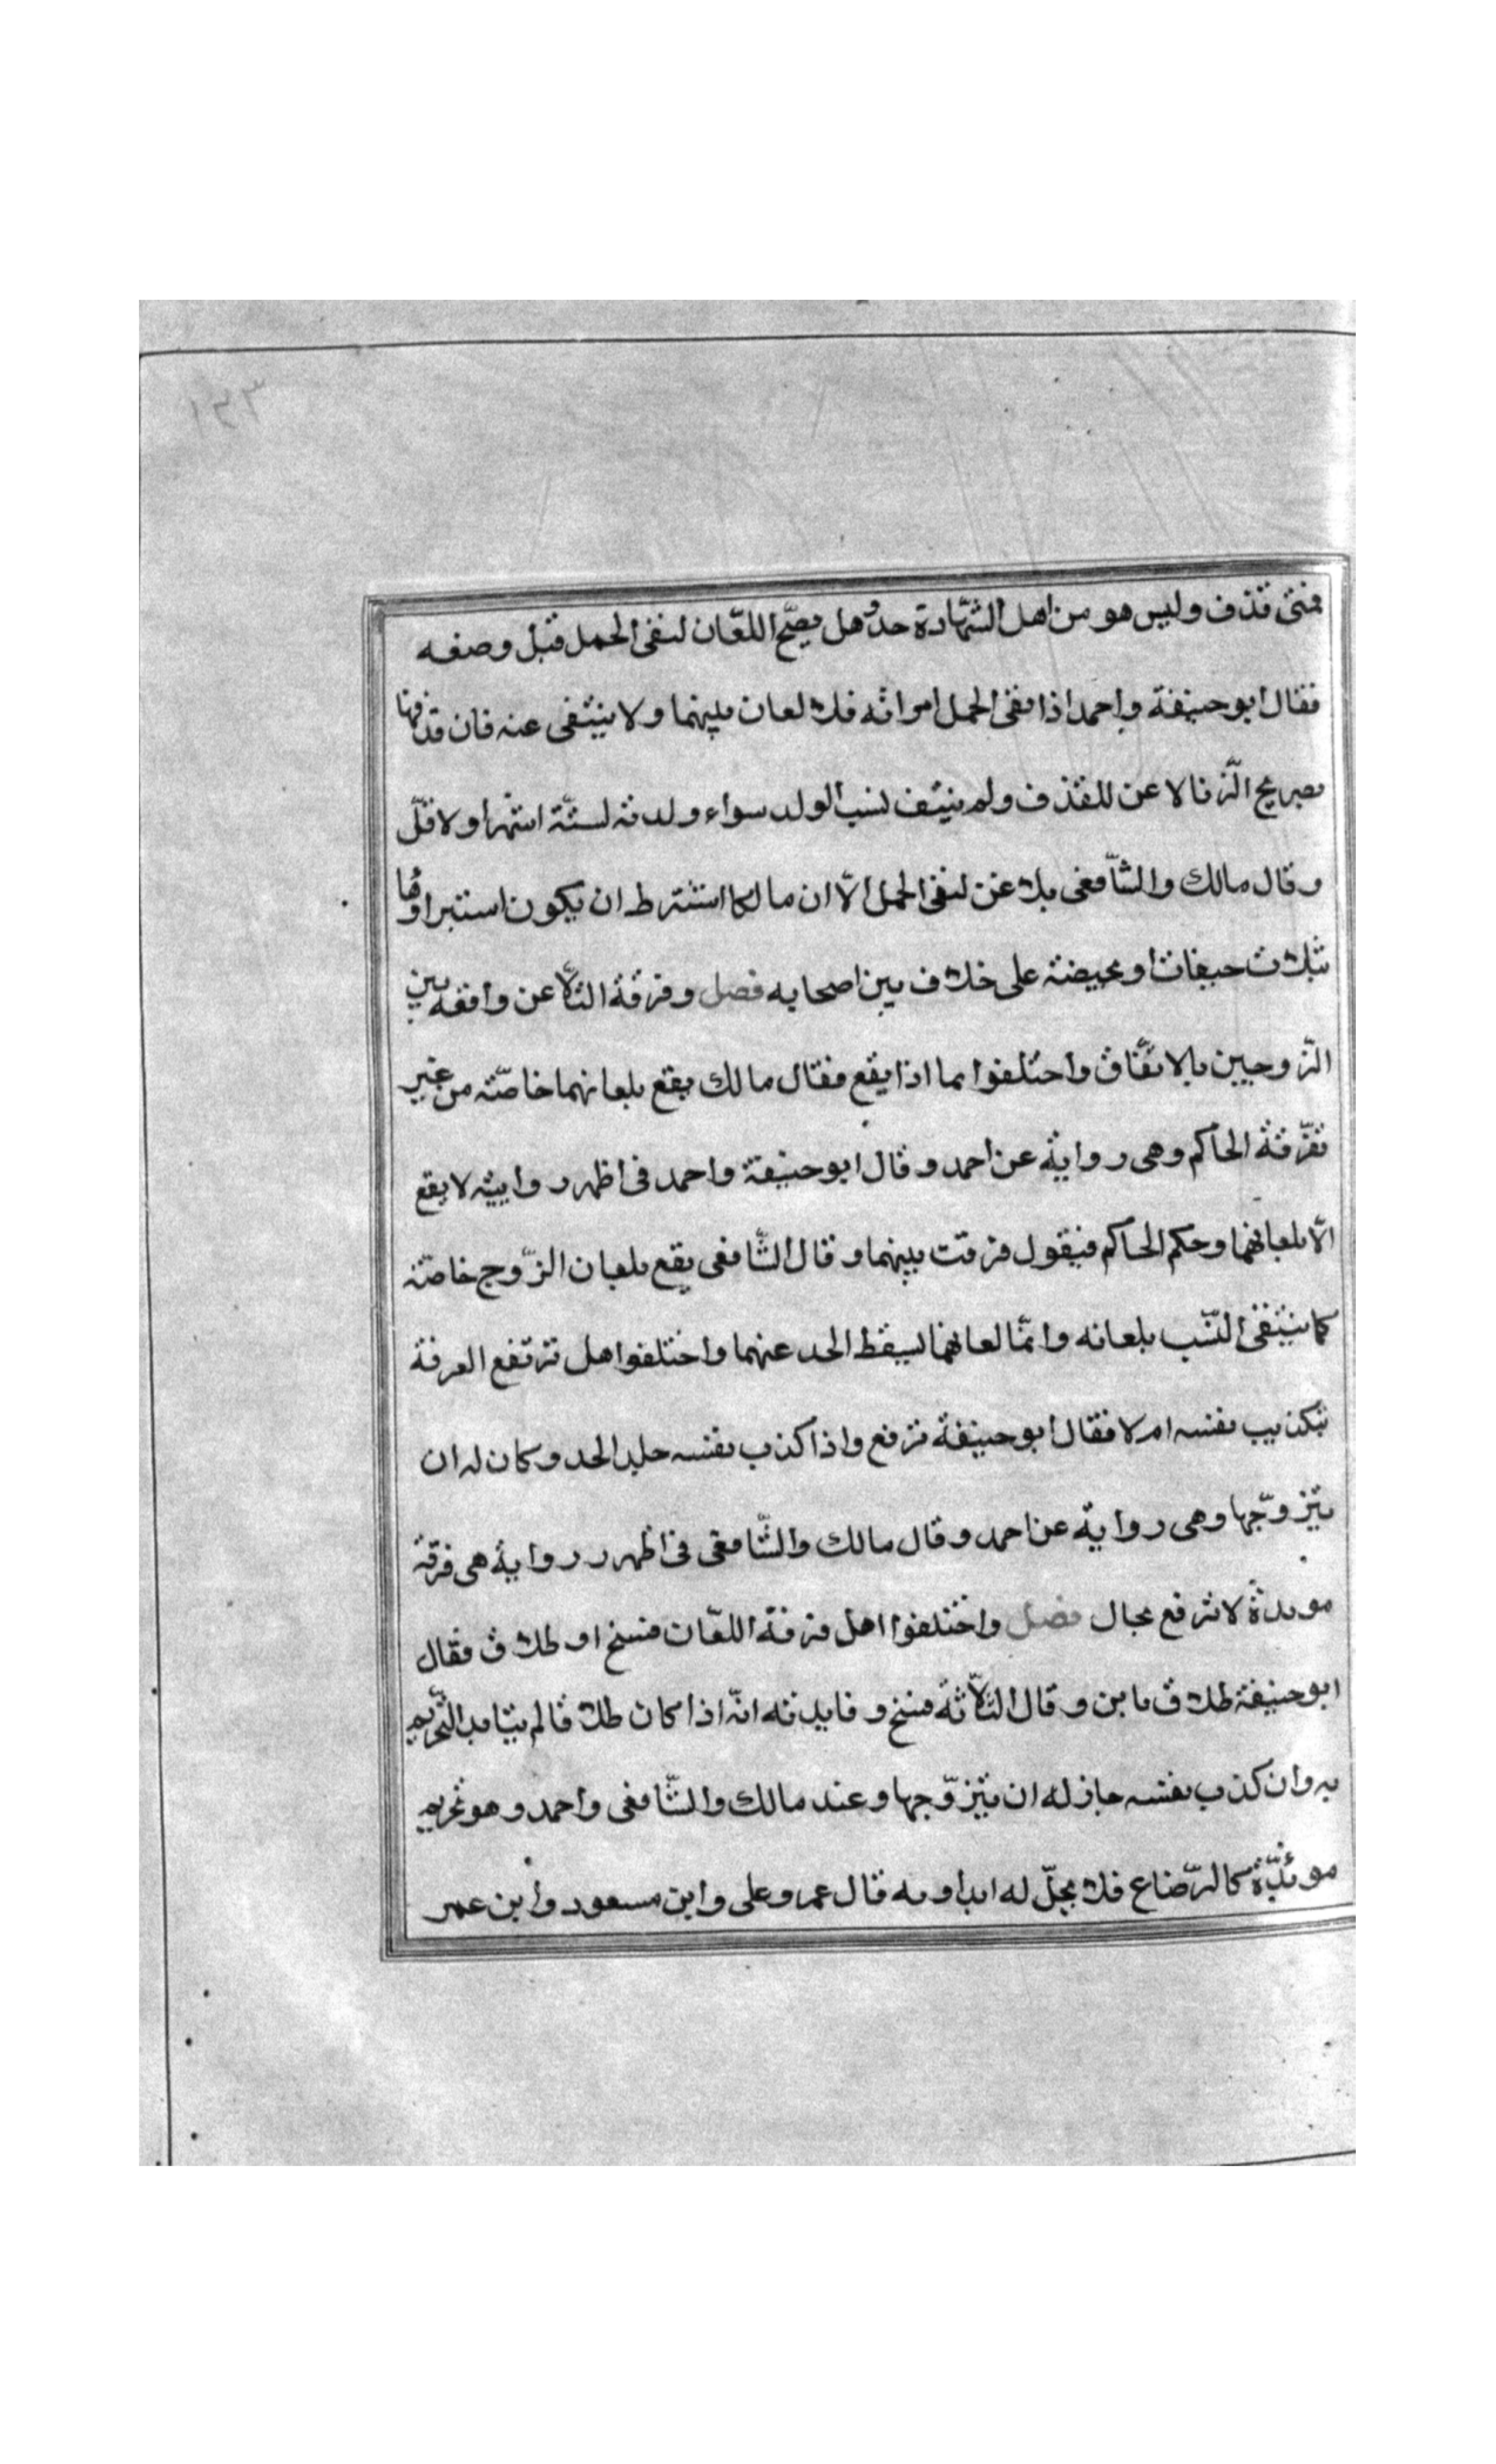 ١٢٣
فمتى قذف وليس هو من اهل الشهادة حد وهل يصح اللعان لنفى الحمل قبل وصفه
فقال ابو حنيفة واحمد اذا نفى الحمل امراته فلا لعان بينهما ولا ينتفى عنه فان قذفها
بصريح الزنا لاعن للقذف ولم ينتف نسب الولد سواء ولدته لستة اشهر او لاقل
وقال مالك والشافعى يلاعن لنفى الحمل الا ان مالكا اشترط ان يكون استبراوها
بثلاث حيضات او بحيضة على خلاف بين اصحابه فصل وفرقة التلاعن واقعه بين
الزوجين بالاتفاق واختلفوا بما اذا يقع فقال مالك يقع بلعانهما خاصة من غير
تفرقة الحاكم وهى رواية عن احمد وقال ابو حنيفة واحمد فى اظهر روايته لا يقع
الا بلعانهما وحكم الحاكم فيقول فرقت بينهما وقال الشافعى يقع بلعان الزوج خاصة
كما ينتفى النسب بلعانه وانما لعانهما ليسقط الحد عنهما واختلفوا هل ترتفع الفرقة
بتكذيب نفسه ام لا فقال ابو حنيفة ترفع واذا كذب نفسه جلد الحد وكان له ان
يتزوجها وهى رواية عن احمد وقال مالك والشافعى فى اظهر رواية هى فرقة
موبدة لا ترفع بحال فصل واختلفوا اهل فرقة اللعان فسخ او طلاق فقال
ابو حنيفة طلاق باين وقال الثلاثة فسخ وفايدته انه اذا كان طلاقا لم يتابد التحريم
به وان كذب نفسه جاز له ان يتزوجها وعند مالك والشافعى واحمد وهو تحريم
موبدة كالرضاع فلا يحل له ابدا وبه قال عمر وعلى وابن مسعود وابن عمر